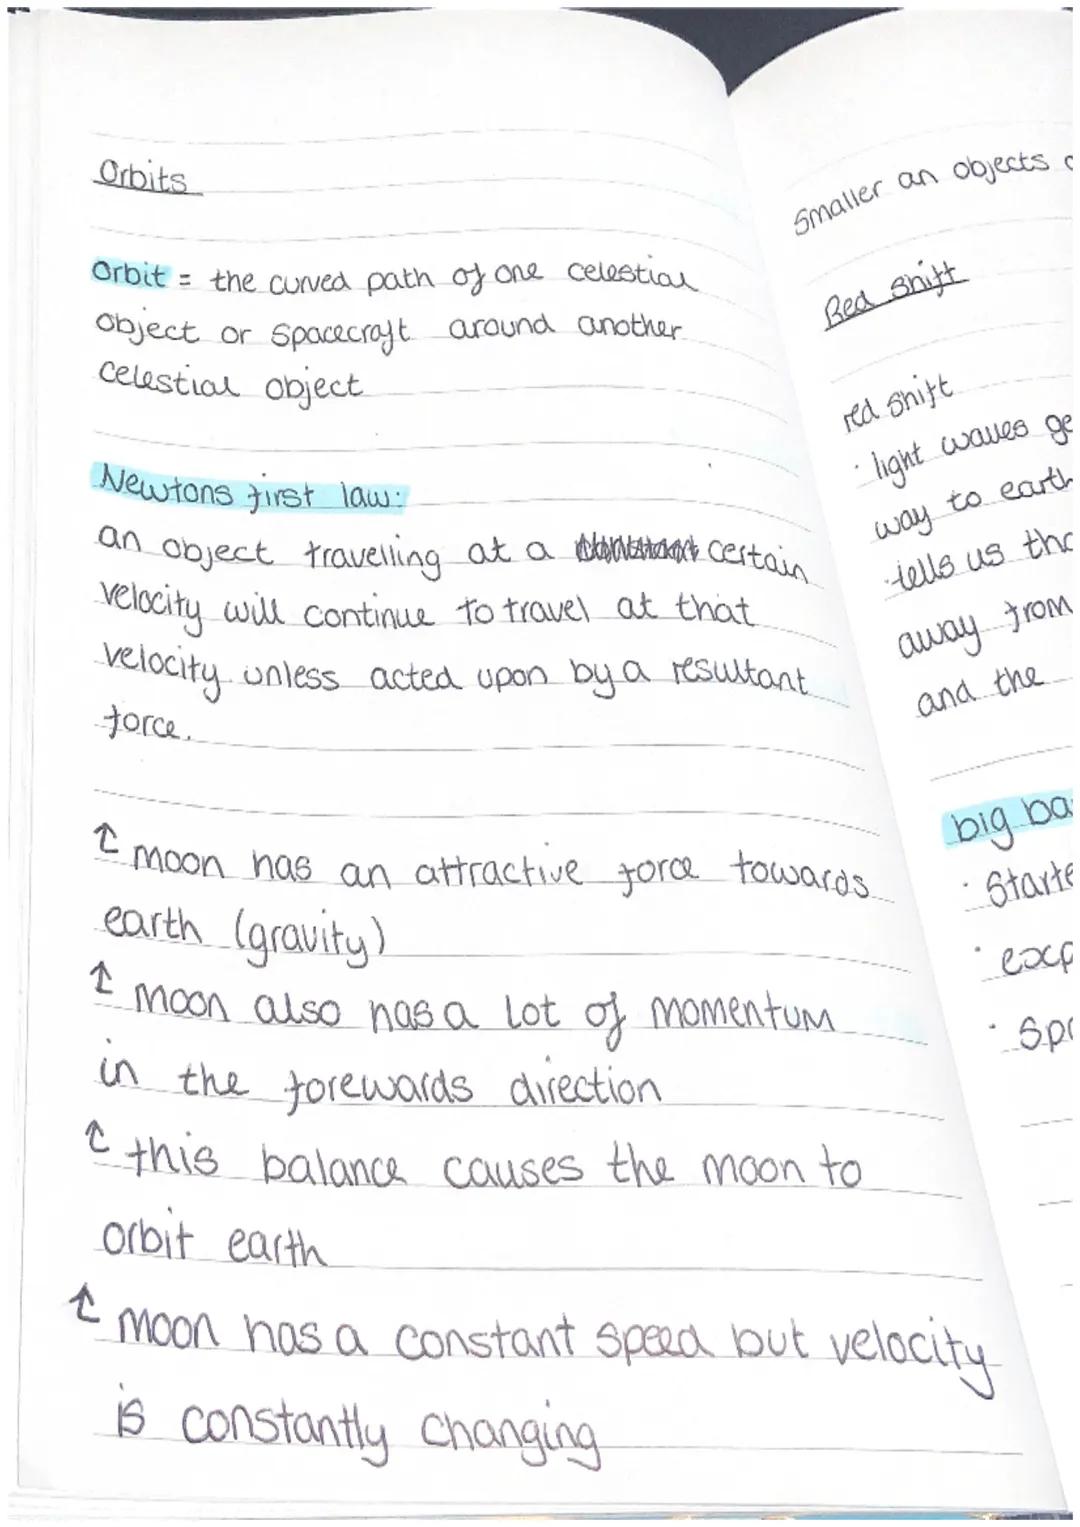 Orbits
Orbit = the curved path of one celestial
object or spacecraft around another
celestial object
Newtons first law:
an object travelling at a certain
velocity will continue to travel at that
velocity unless acted upon by a resultant
force.
↑ moon has an attractive force towards
earth (gravity)
↑ moon also has a lot of momentum
in the forewards direction
↑ this balance causes the moon to
orbit earth
↑ moon has a constant speed but velocity
is constantly changing
Smaller an objects
Red Shift
red shift
· light waves ge
way to earth
· tells us tha
away from
and the
big ba
· Starte
· exp
· Spa